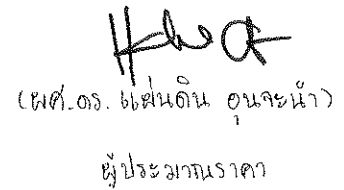 (ผศ.ดร. แผ่นดิน อุนจะนำ)
ผู้ประมาณราคา